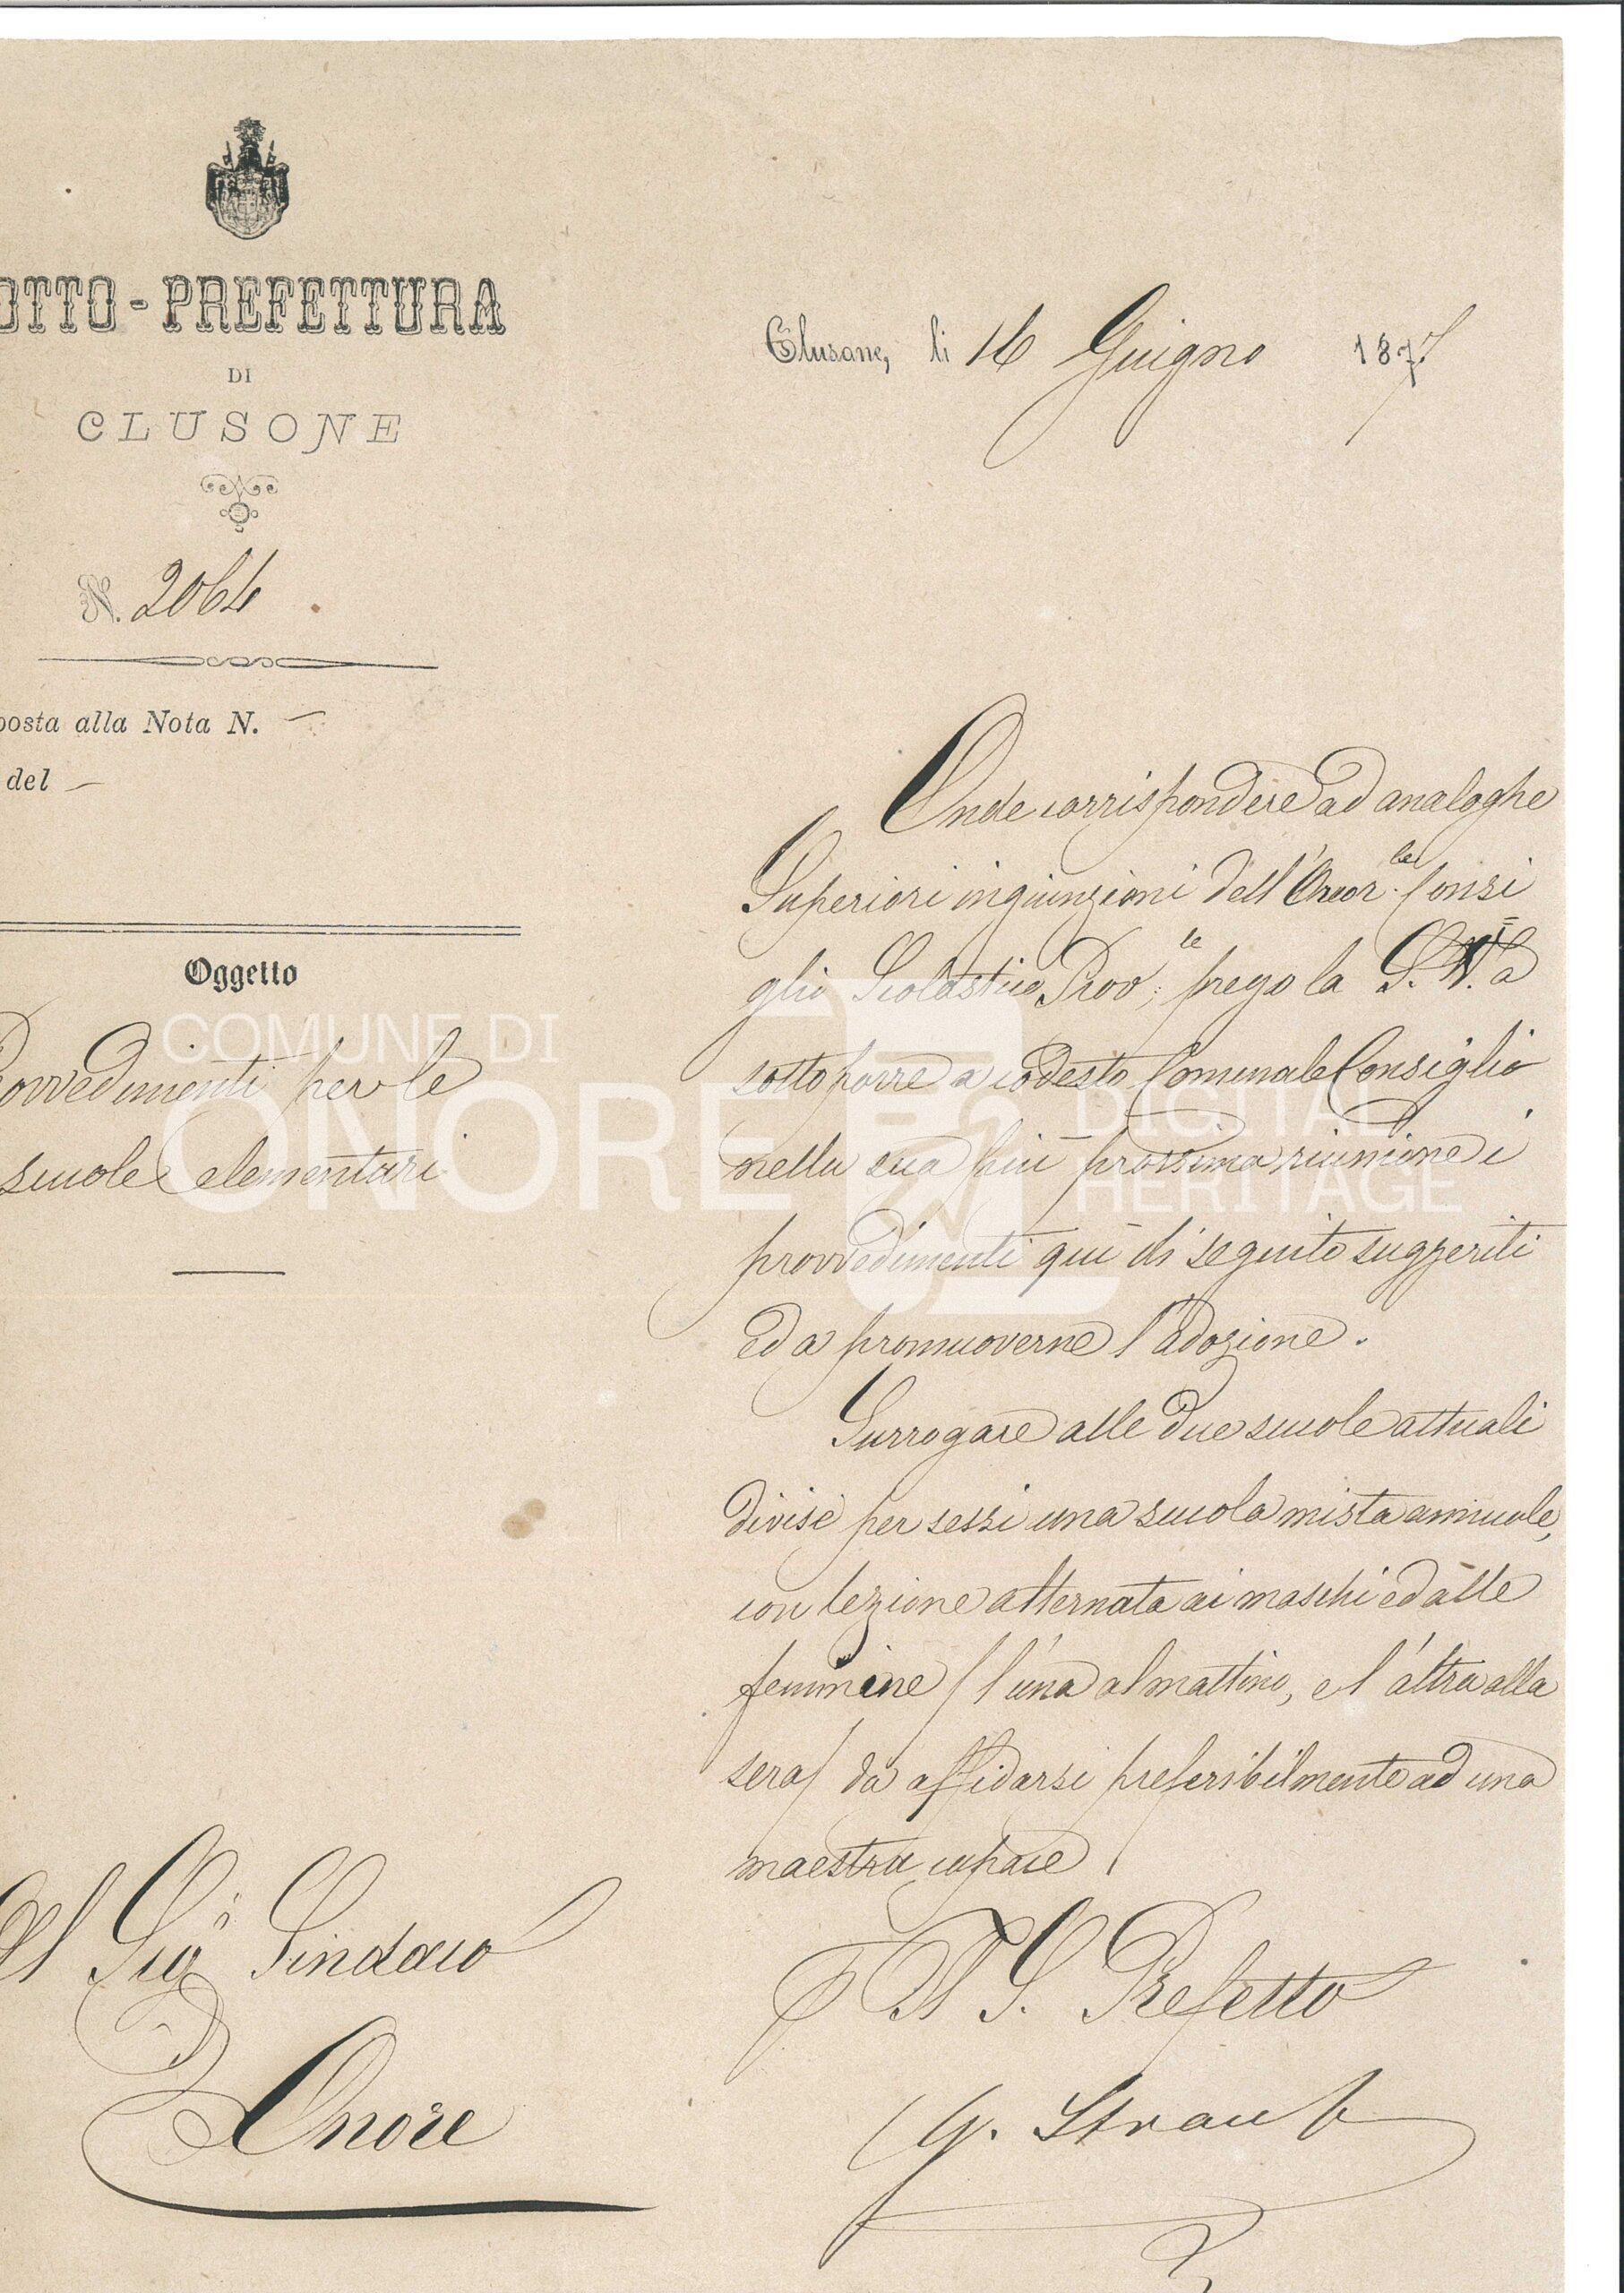 OTTO-PREFETTURA
DI
CLUSONE
N. 2064
posta alla Nota N. —
del —
Oggetto
rovvedimenti per le
scuole elementari
Al Sig.r Sindaco
Onore
Clusone, li 16 Guigno 1877
Onde corrispondere ad analoghe
Superiori ingiunzioni dell'Onor.le Consi
glio Scolastico Prov.le prego la S. V. a
sottoporre a codesto Comunale Consiglio
nella sua più prossima riunione i
provvedimenti qui di seguito suggeriti
ed a promuoverne l'adozione.
Surrogare alle due scuole attuali
divise per sessi una scuola mista annuale,
con lezione alternata ai maschi ed alle
femmine / l'una al mattino, e l'altra alla
sera / da affidarsi preferibilmente ad una
maestra capace
Il S. Prefetto
G. Straub
COMUNE DI
ONORE
DIGITAL
HERITAGE